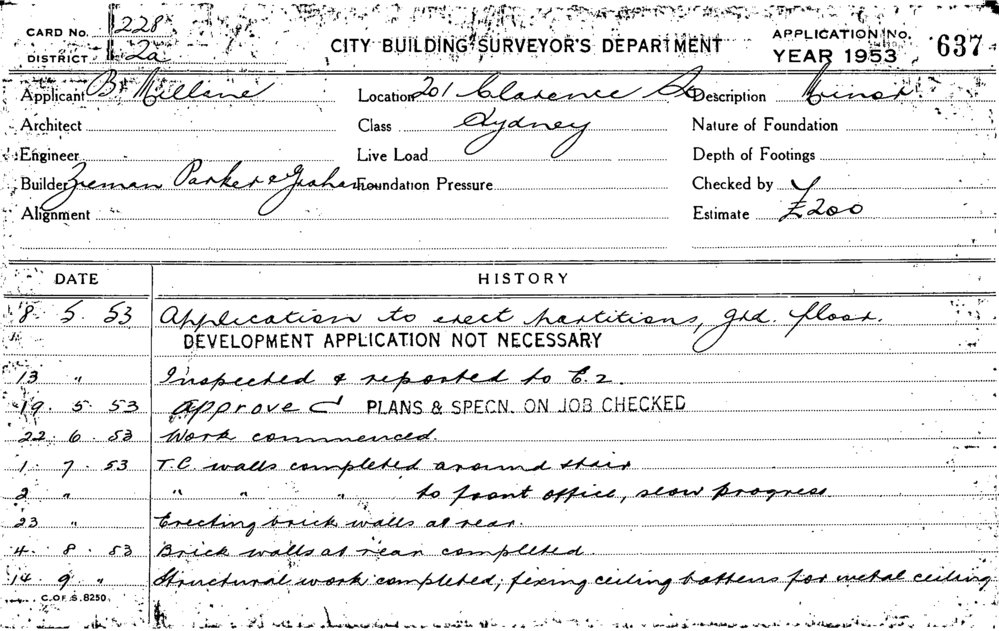 CARD No. 228
DISTRICT 2a
CITY BUILDING SURVEYOR'S DEPARTMENT
APPLICATION No. 637
YEAR 1953
Applicant B. Millane Location 201 Clarence St Description Minor
Architect Class Sydney Nature of Foundation
Engineer Live Load Depth of Footings
Builder Zieman Parker & Graham Foundation Pressure Checked by
Alignment Estimate £200
DATE HISTORY
8. 5. 53 Application to erect partitions, grd. floor.
DEVELOPMENT APPLICATION NOT NECESSARY
13 " Inspected & reported to C.2.
19. 5. 53 Approved PLANS & SPECN. ON JOB CHECKED
22. 6. 53 Work commenced.
1. 7. 53 T.C. walls completed around stair
2 " " " " to front office, slow progress
23 " Erecting brick walls at rear.
4. 8. 53 Brick walls at rear completed.
14. 9 " Structural work completed, fixing ceiling battens for metal ceiling
C. OF S. 8250